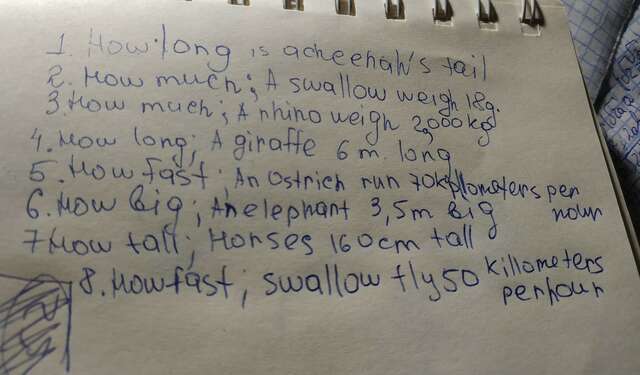 1. How long is acheetah's tail
2. How much; A swallow weigh 18g.
3. How much; A rhino weigh 2,000kg
4. How long; A giraffe 6 m. long
5. How fast; An Ostrich run 70killometers per hour
6. How big; An elephant 3,5m big
7 How tall; Horses 160cm tall
8. How fast; swallow fly 50 killometers per hour